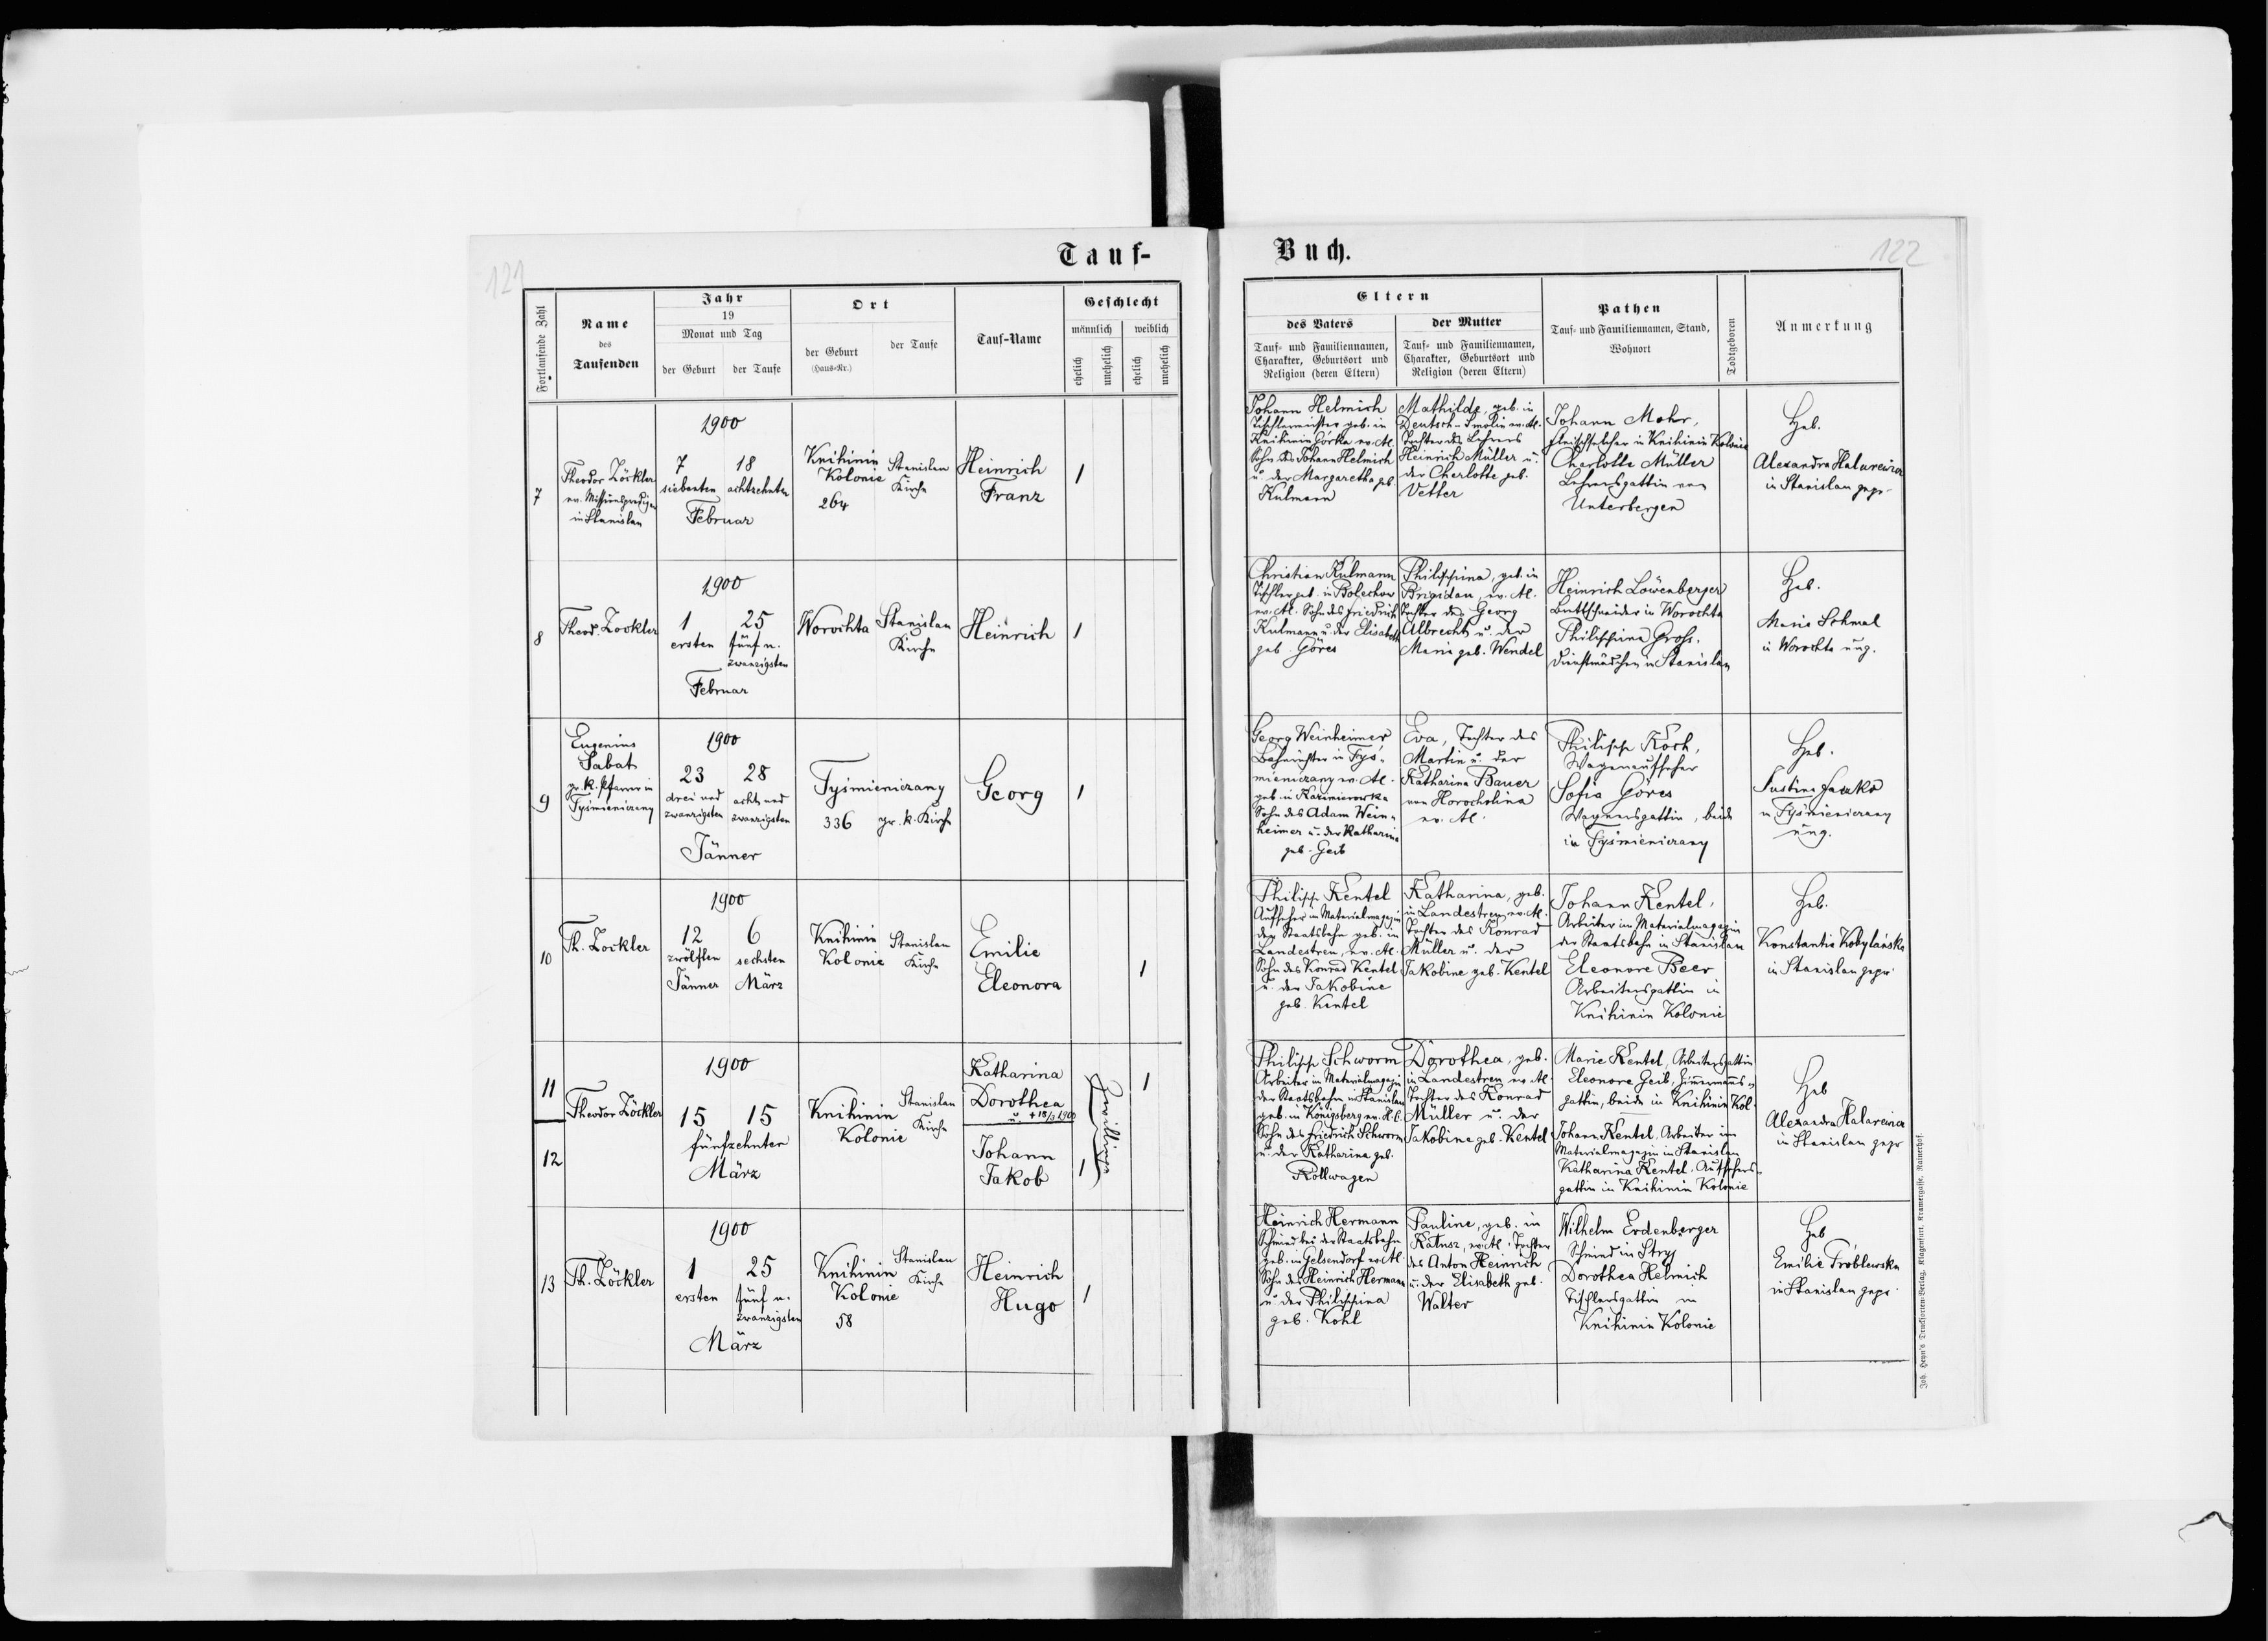 Tauf-
121
Fortlaufende Zahl
Name
des
Taufenden
Jahr
19
Monat und Tag
der Geburt
der Taufe
Ort
der Geburt
(Haus-Nr.)
der Taufe
Tauf-Name
Geschlecht
männlich
weiblich
ehelich
unehelich
ehelich
unehelich
7
Theodor Zöckler
ev. Missionsprediger
in Stanislau
1900
7 18
siebenten achtzehnten
Februar
Knihinin
Kolonie
264
Stanislau
Kirche
Heinrich
Franz
1
8
Theod. Zöckler
1900
1 25
ersten fünf u.
zwanzigsten
Februar
Worochta
Stanislau
Kirche
Heinrich
1
9
Eugenius
Sabat
gr. k. Pfarrer in
Tyśmieniczany
1900
23 28
drei und acht und
zwanzigsten zwanzigsten
Jänner
Tyśmieniczany
336 gr. k. Kirche
Georg
1
10
Th. Zöckler
1900
12 6
zwölften sechsten
Jänner März
Knihinin
Kolonie
Stanislau
Kirche
Emilie
Eleonora
1
11
12
Theodor Zöckler
1900
15 15
fünfzehnten
März
Knihinin
Kolonie
Stanislau
Kirche
Katharina
Dorothea
u. + 18/3 1900
Johann
Jakob
Zwillinge
1
1
13
Th. Zöckler
1900
1 25
ersten fünf u.
zwanzigsten
März
Knihinin
Kolonie
58
Stanislau
Kirche
Heinrich
Hugo
1
Buch.
122
Eltern
des Vaters
Tauf- und Familiennamen,
Charakter, Geburtsort und
Religion (deren Eltern)
der Mutter
Tauf- und Familiennamen,
Charakter, Geburtsort und
Religion (deren Eltern)
Pathen
Tauf- und Familiennamen, Stand,
Wohnort
Todtgeboren
Anmerkung
Johann Helmich
Tischlermeister geb. in
Knihinin Górka ev. AC.
Sohn des Johann Helmich
u. der Margaretha geb.
Kulmann
Mathilde, geb. in
Deutsch-Smolin ev. AC.
Tochter des Lehrers
Heinrich Müller u.
der Charlotte geb.
Vetter
Johann Mohr,
Fleischselcher in Knihinin Kolonie
Charlotte Müller
Lehrersgattin von
Unterbergen
Heb.
Alexandra Halarewicz
in Stanislau gepr.
Christian Kulmann
Tischler geb. in Bolechow
ev. AC. Sohn des Friedrich
Kulmann u. der Elisabeth
geb. Göres
Philippina, geb. in
Brigidau, ev. AC.
Tochter des Georg
Albrecht u. der
Maria geb. Wendel
Heinrich Löwenberger
Brettschneider in Worochta
Philippina Gross.
Dienstmädchen in Stanislau
Heb.
Maria Schmal
in Worochta ung.
Georg Weinheimer
Bahnrichter in Tyś-
mieniczany ev. AC.
geb. in Kazimierowka
Sohn des Adam Wein-
heimer u. der Katharina
geb. Geib
Eva, Tochter des
Martin u. der
Katharina Bauer
von Horocholina
ev. AC.
Philipp Koch,
Wagenaufseher
Sofia Göres
Wagnersgattin, beide
in Tyśmieniczany
Heb.
Justina
in Tyśmieniczany
ung.
Philipp Kentel
Aufseher im Materialmagazin
der Staatsbahn geb. in
Landestreu, ev. AC.
Sohn des Konrad Kentel
u. der Jakobine
geb. Kentel
Katharina, geb.
in Landestreu, ev. AC.
Tochter des Konrad
Müller u. der
Jakobine geb. Kentel
Johann Kentel,
Arbeiter im Materialmagazin
der Staatsbahn in Stanislau
Eleonore Beer
Arbeitersgattin in
Knihinin Kolonie
Heb.
Konstantia Kobylańska
in Stanislau gepr.
Philipp Schworm
Arbeiter im Materialmagazin
der Staatsbahn in Stanislau
geb. in Königsberg ev. H.C.
Sohn des Friedrich Schworm
u. der Katharina geb.
Rollwagen
Dorothea, geb.
in Landestreu ev. AC.
Tochter des Konrad
Müller u. der
Jakobine geb. Kentel
Marie Kentel, Arbeitersgattin
Eleonore Geib, Zimmermanns-
gattin, beide in Knihinin Kol.
Johann Kentel, Arbeiter im
Materialmagazin in Stanislau
Katharina Kentel, Aufsehers-
gattin in Knihinin Kolonie
Heb
Alexandra Halarewicz
in Stanislau gepr
Heinrich Hermann
Schmied bei der Staatsbahn
geb. in Gelsendorf ev. AC.
Sohn des Heinrich Hermann
u. der Philippina
geb. Kohl
Pauline, geb. in
Kałusz, ev. AC. Tochter
des Anton Heinrich
u. der Elisabeth geb.
Walter
Wilhelm Erdenberger
Schmied in Stry
Dorothea Helmich
Tischlersgattin in
Knihinin Kolonie
Heb
Emilie Tróblewska
in Stanislau gepr.
Joh. Heyn's Drucksorten-Verlag, Klagenfurt, Kramergasse, Rainerhof.